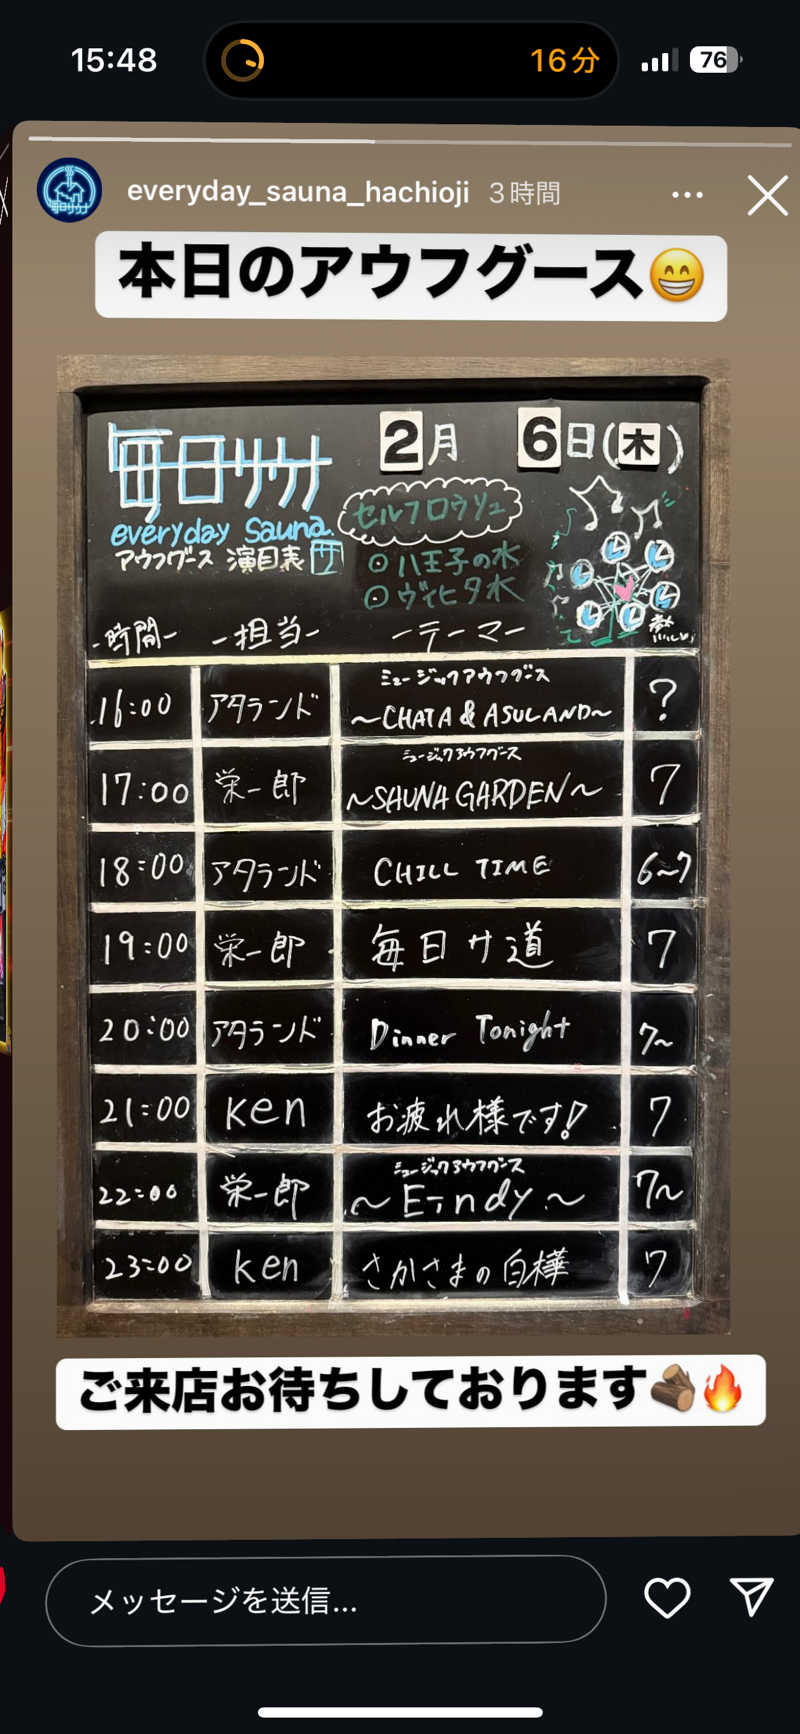 15:48
16分
76
everyday_sauna_hachioji 3時間
本日のアウフグース😁
毎日サウナ
2月 6日(木)
everyday Sauna.
アウフグース 演目表 サ
セルフロウリュ
八王子の水
ヴィヒタ水
-時間- -担当- -テーマー
16:00 アタランド ミュージックアウフグース ?
〜CHATA & ASULAND〜
17:00 栄一郎 ミュージックアウフグース 7
〜SAUNA GARDEN〜
18:00 アタランド CHILL TIME 6〜7
19:00 栄一郎 毎日サ道 7
20:00 アタランド Dinner Tonight 7〜
21:00 ken お疲れ様です! 7
22:00 栄一郎 ミュージックアウフグース 7〜
23:00 ken さかさまの白樺 7
ご来店お待ちしております🪵🔥
メッセージを送信...